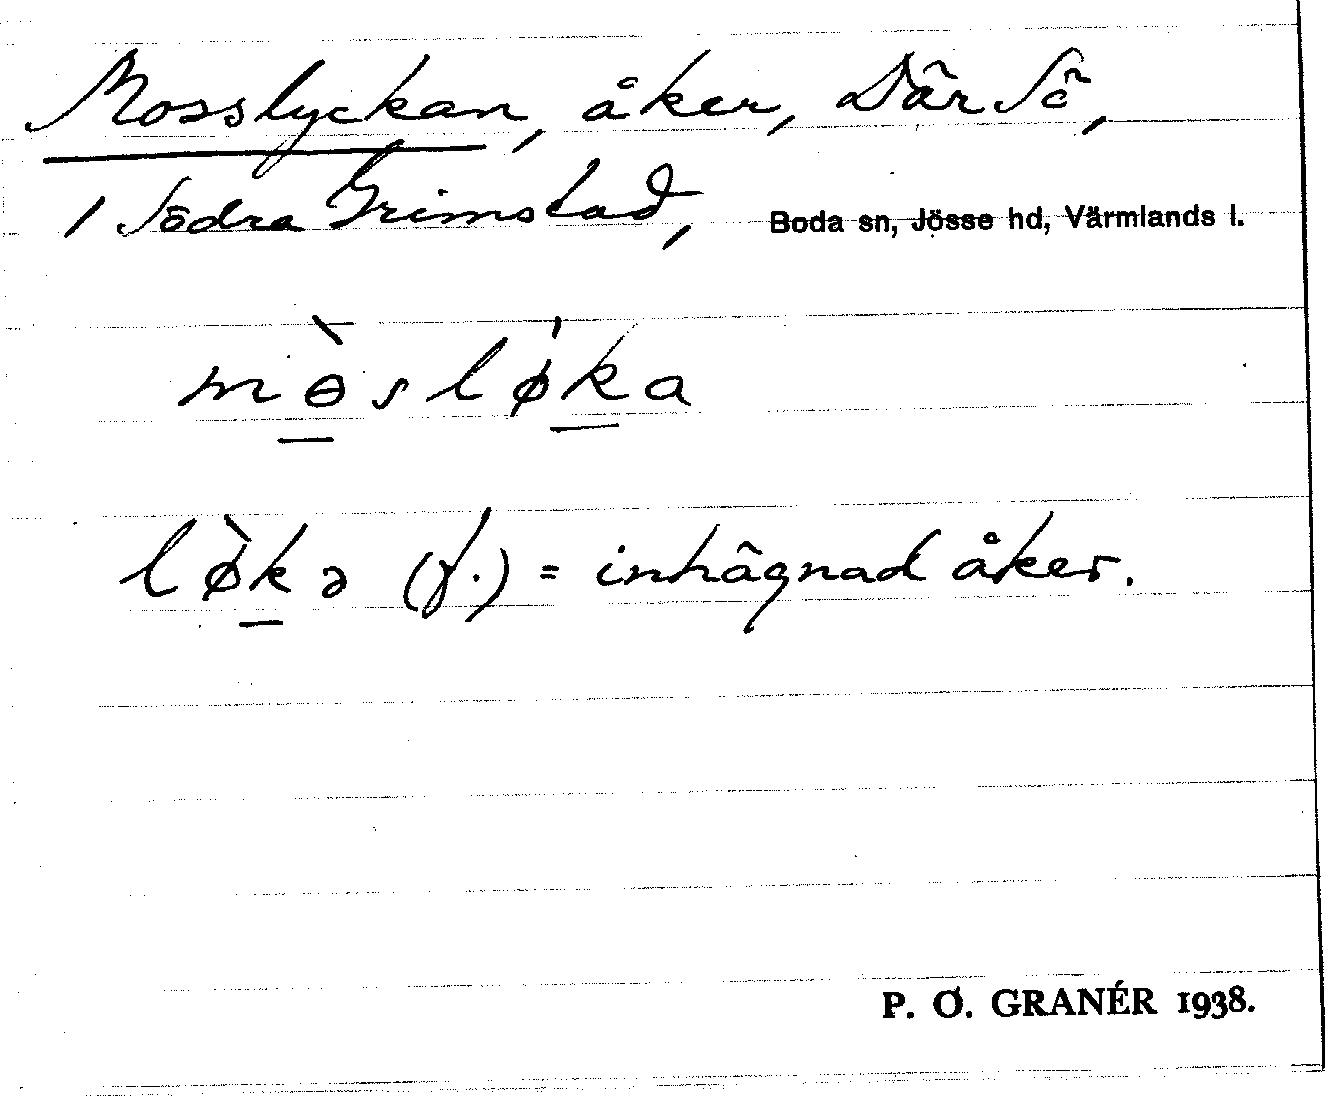 Mosslyckan, åker, Där Sö,
1 Södra Grimstad, Boda sn, Jösse hd, Värmlands l.
mɵ̀sløka
lø̀kə (f.) = inhägnad åker.
P. O. GRANÉR 1938.